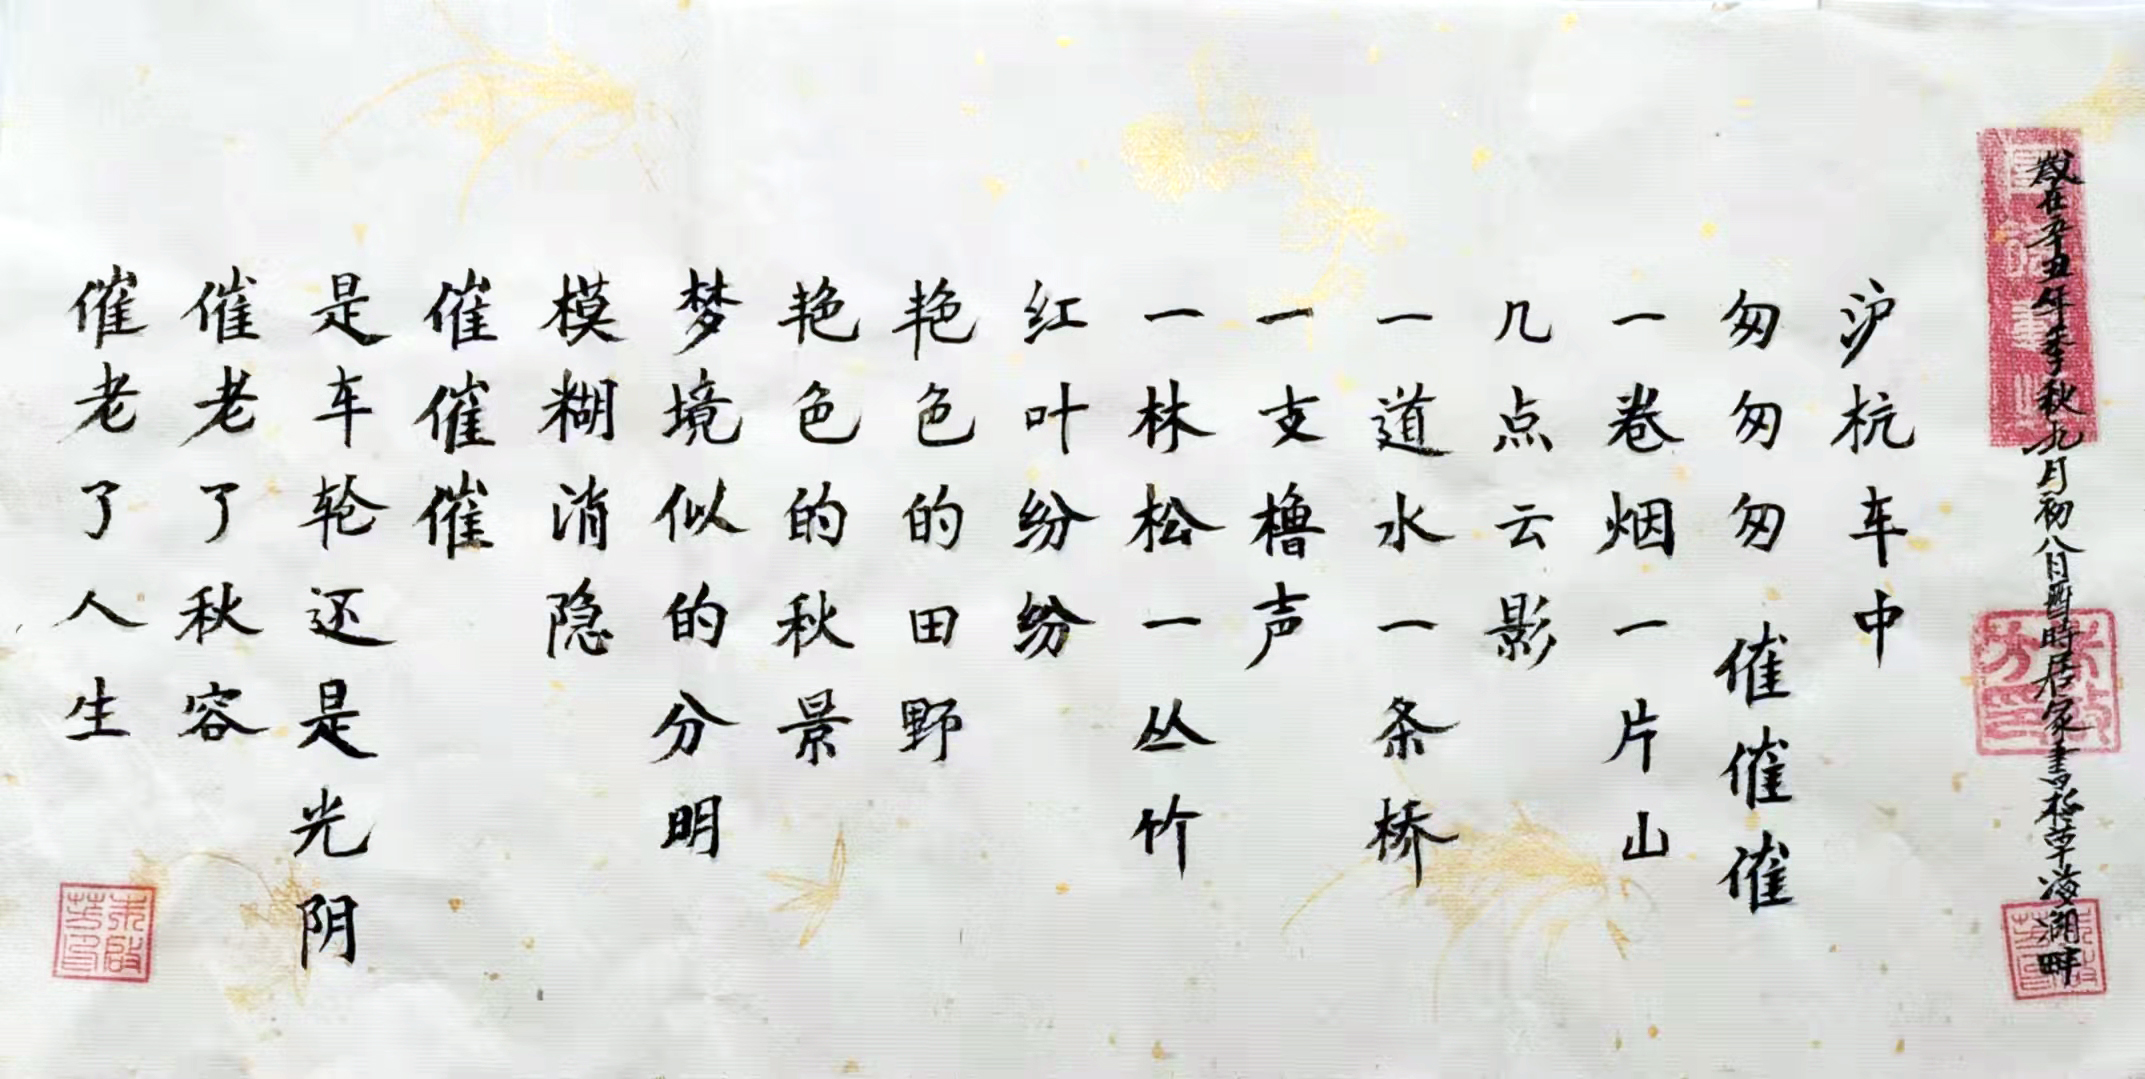 岁在辛丑年季秋九月初八日酉時居家書於草海湖畔
沪杭车中
匆匆匆 催催催
一卷烟一片山
几点云影
一道水一条桥
一支橹声
一林松一丛竹
红叶纷纷
艳色的田野
艳色的秋景
梦境似的分明
模糊消隐
催催催
是车轮还是光阴
催老了秋容
催老了人生